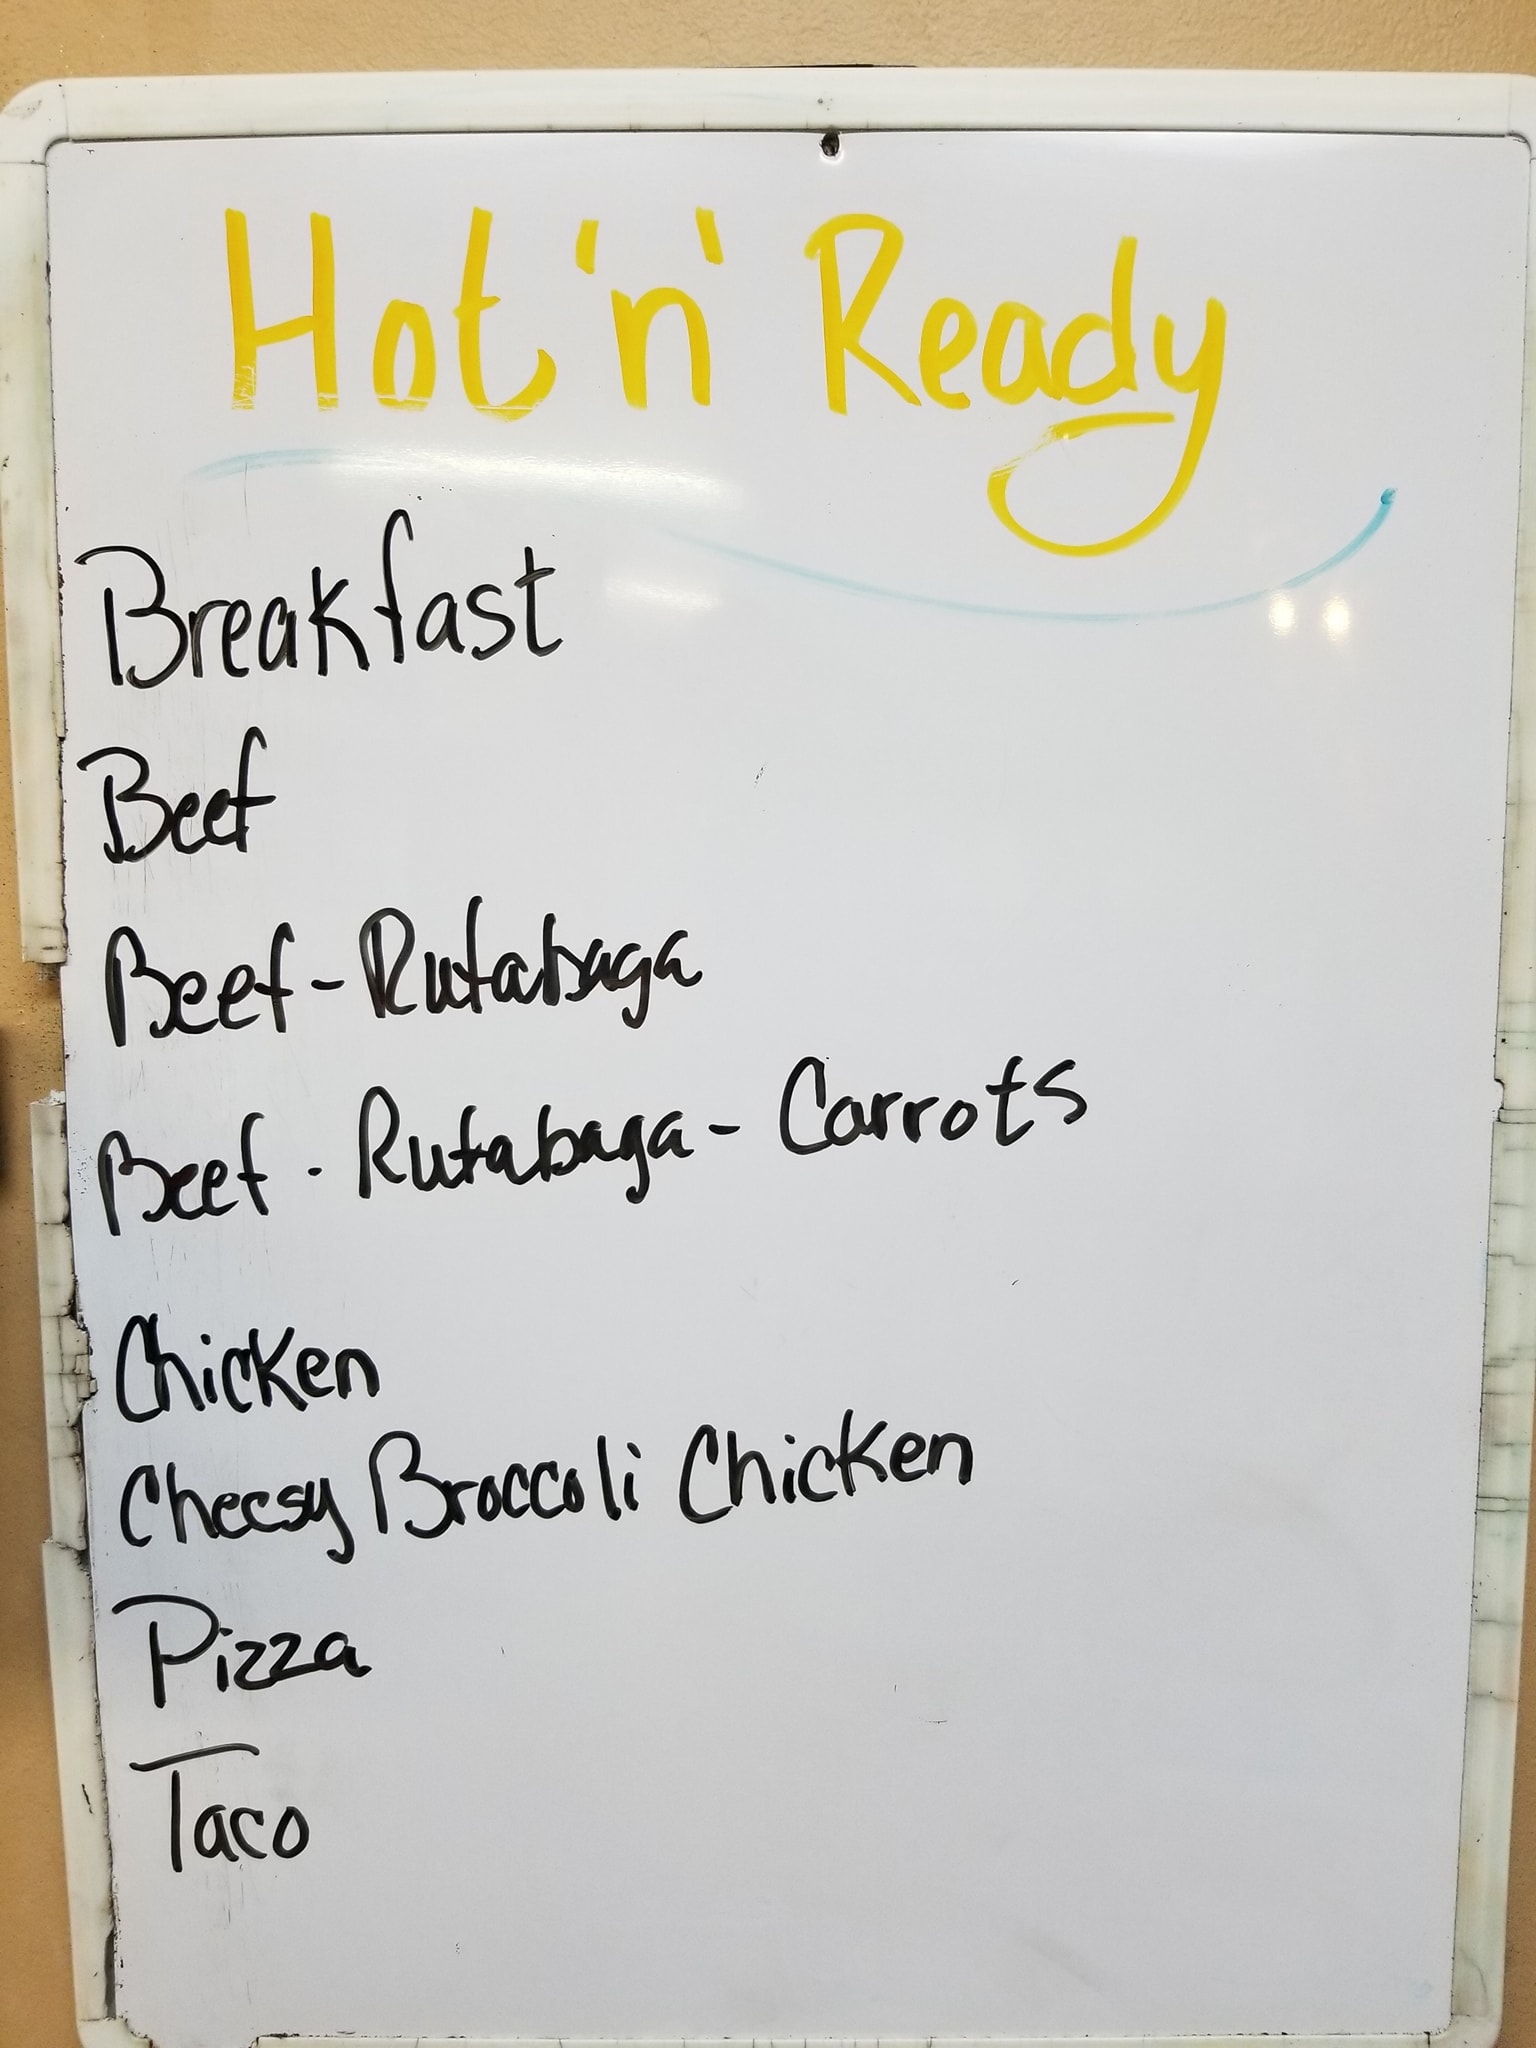 Hot 'n' Ready
Breakfast
Beef
Beef-Rutabaga
Beef-Rutabaga-Carrots
Chicken
Cheesy Broccoli Chicken
Pizza
Taco